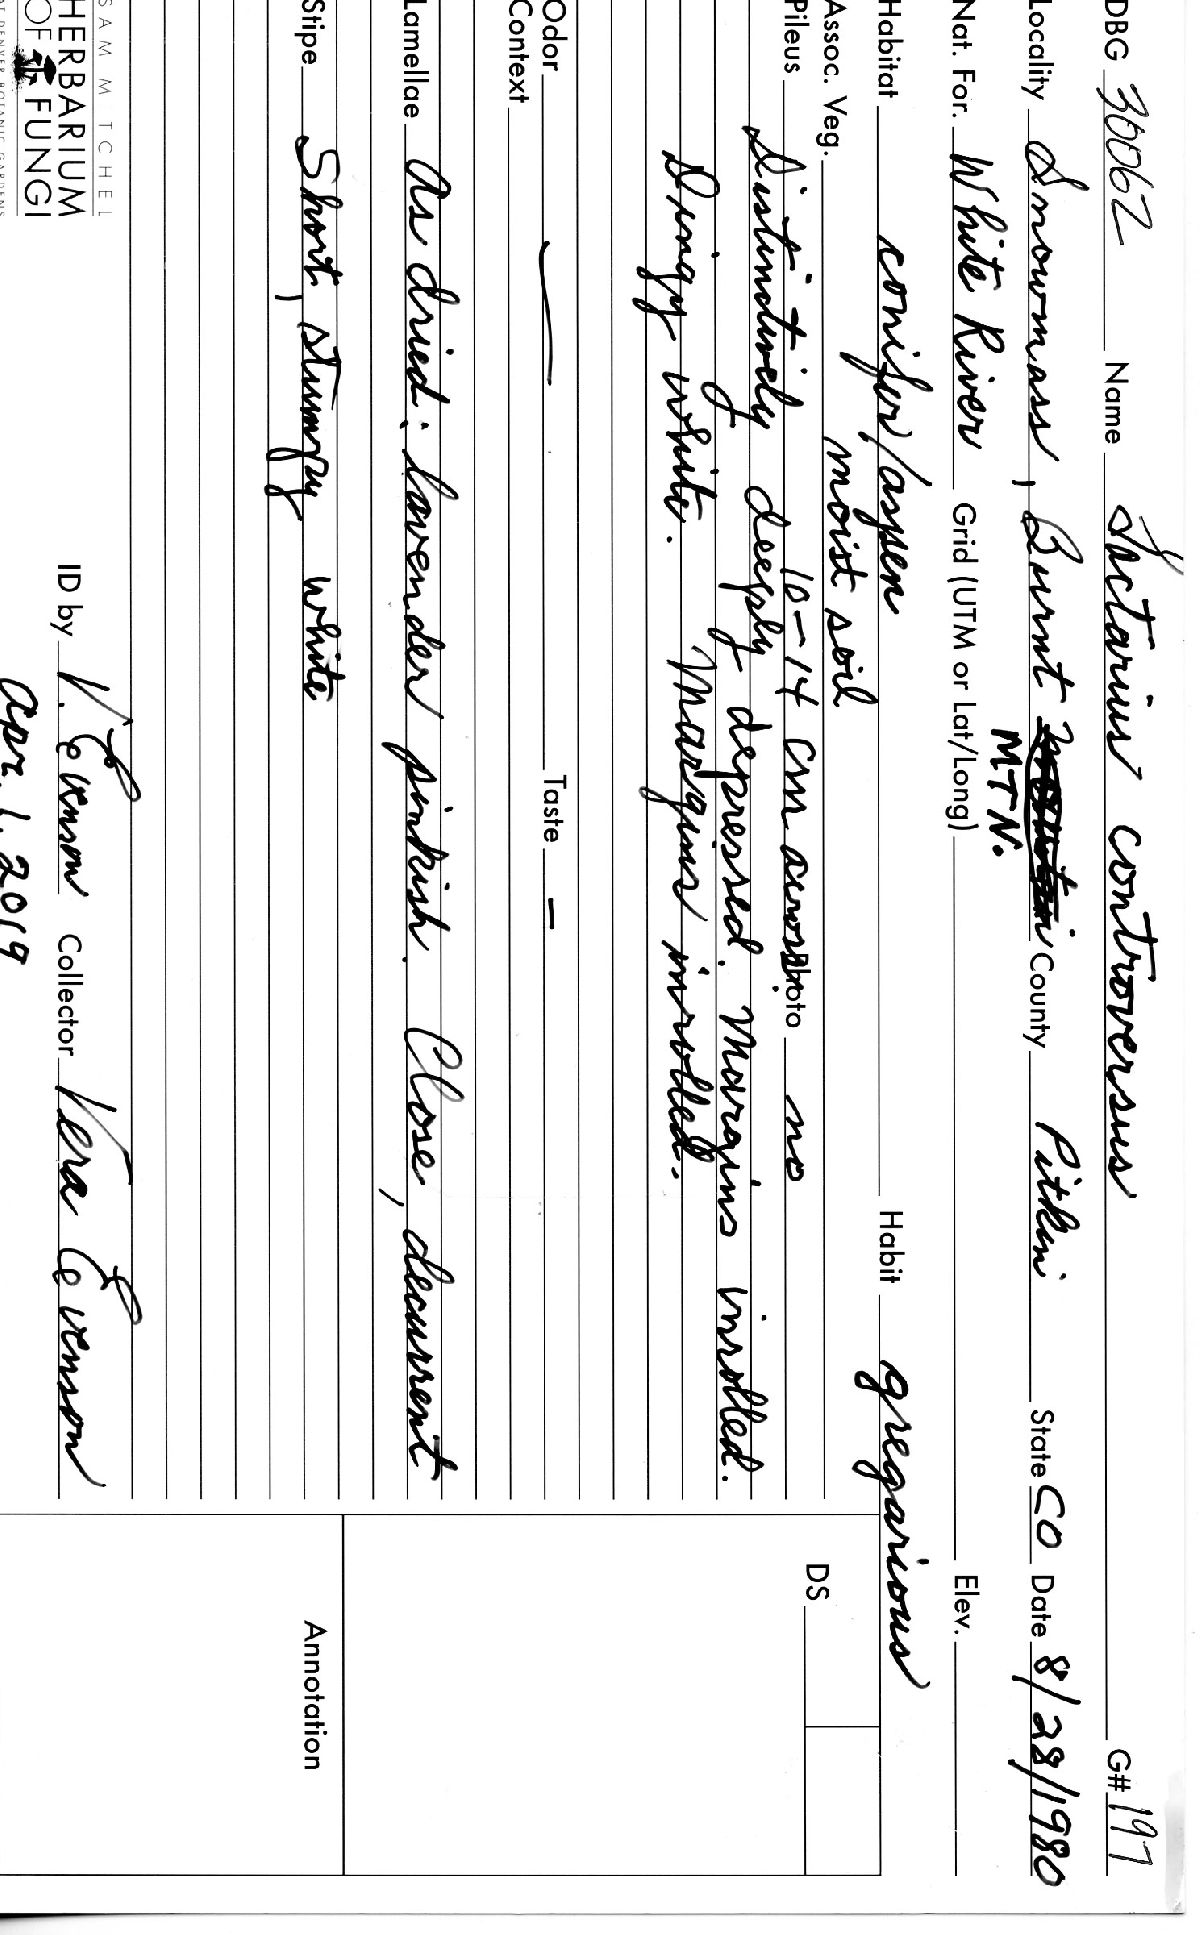 DBG 30062 Name Lactarius controversus G# 197
Locality Snowmass, Burnt County Pitkin State CO Date 8/28/1980
MTN.
Nat. For. White River Grid (UTM or Lat/Long) Elev.
Habitat conifer/aspen Habit gregarious
Assoc. Veg. moist soil DS
Pileus 10-14 cm across Photo no
Distinctively deeply depressed. Margins inrolled.
Dingy white. Margins inrolled.
Odor Taste —
Context
Lamellae As dried: lavender pinkish. Close, decurrent
Stipe Short, stumpy white
Annotation
SAM M TCHEL
HERBARIUM
OF FUNGI
OF DENVER BOTANIC GARDENS
ID by V. Evenson Collector Vera Evenson
Apr. 1. 2019